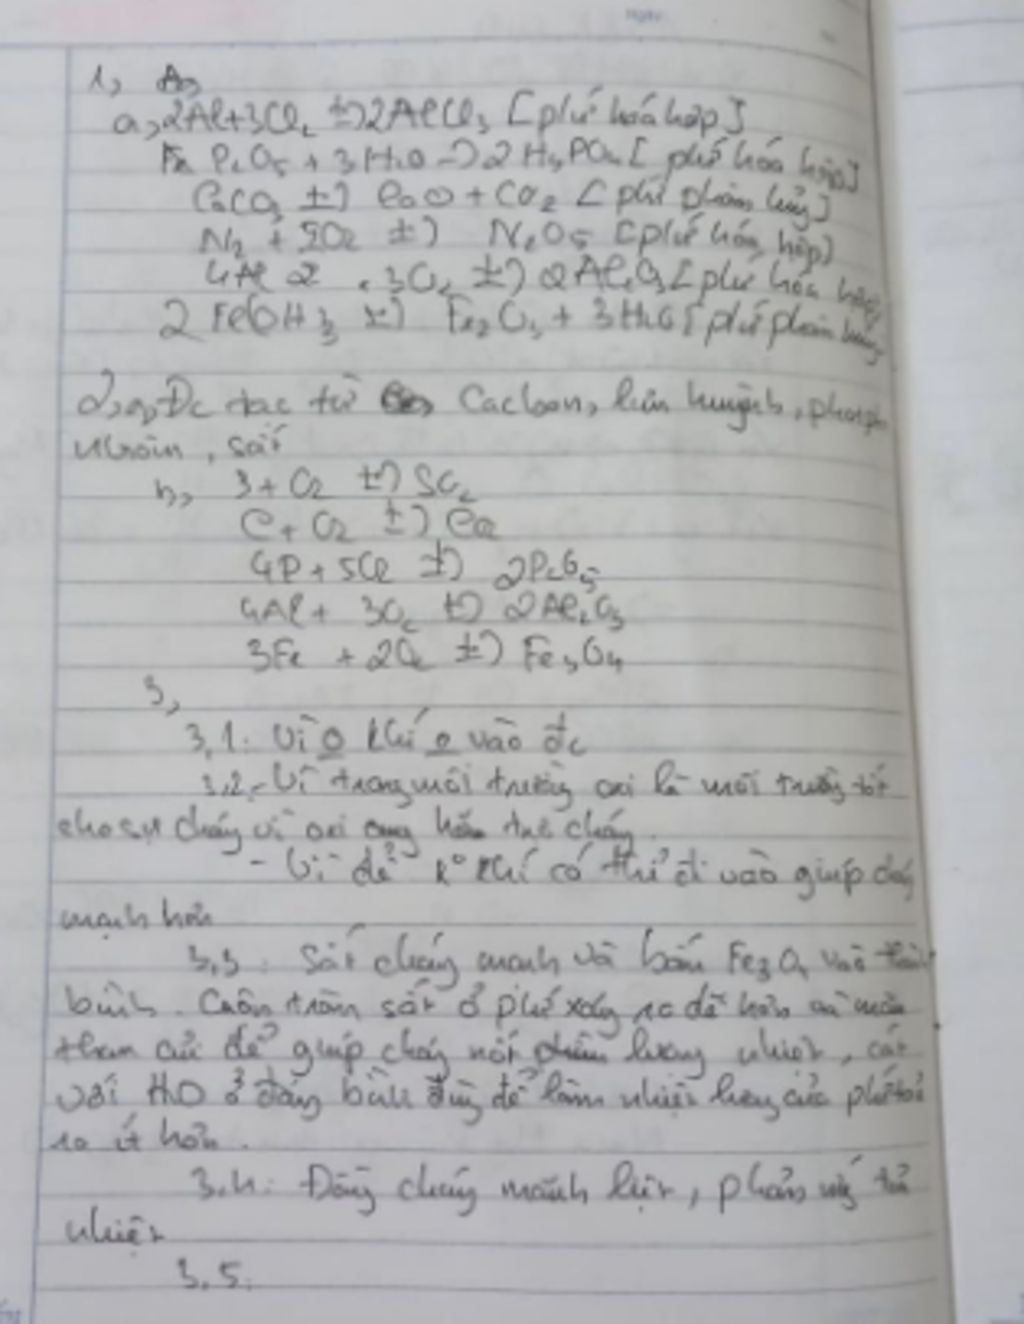 1,
a, 2Al+3Cl2 t°→ 2AlCl3 [phứ hoá hợp]
P2O5 + 3H2O → 2H3PO4 [phứ hóa hợp]
CaCO3 t°→ CaO + CO2 [phứ phân hủy]
N2 + 5O2 t°→ N2O5 [phứ hóa hợp]
4Al + 3O2 t°→ 2Al2O3 [phứ hóa hợp]
2 Fe(OH)3 t°→ Fe2O3 + 3H2O [phứ phân hủy]
2, a, Đc tạc từ Cacboon, lưu huỳnh, phosph
nhôm, sắt
b, S + O2 t°→ SO2
C + O2 t°→ CO2
4P + 5O2 t°→ 2P2O5
4Al + 3O2 t°→ 2Al2O3
3Fe + 2O2 t°→ Fe3O4
3,
3,1. Vì khí vào đc
3,2. - Vì trong môi trường oxi là môi trường tốt
cho sự cháy vì oxi cháy
- Vì để k° khí có thể đi vào giúp cháy
mạnh hơn
3,3. Sắt cháy mạnh và bám Fe3O4 vào thành
bình. Cuộn tròn sắt ở phứ xảy ra dễ hơn và mẩu
than củi để giúp cháy nốt lượng nhiệt, cát
với H2O ở đáy bình để làm nhiệt lượng của phứ toả
ra ít hơn.
3.4. Đồng cháy mãnh liệt, phản ứng tỏa
nhiệt
3,5.